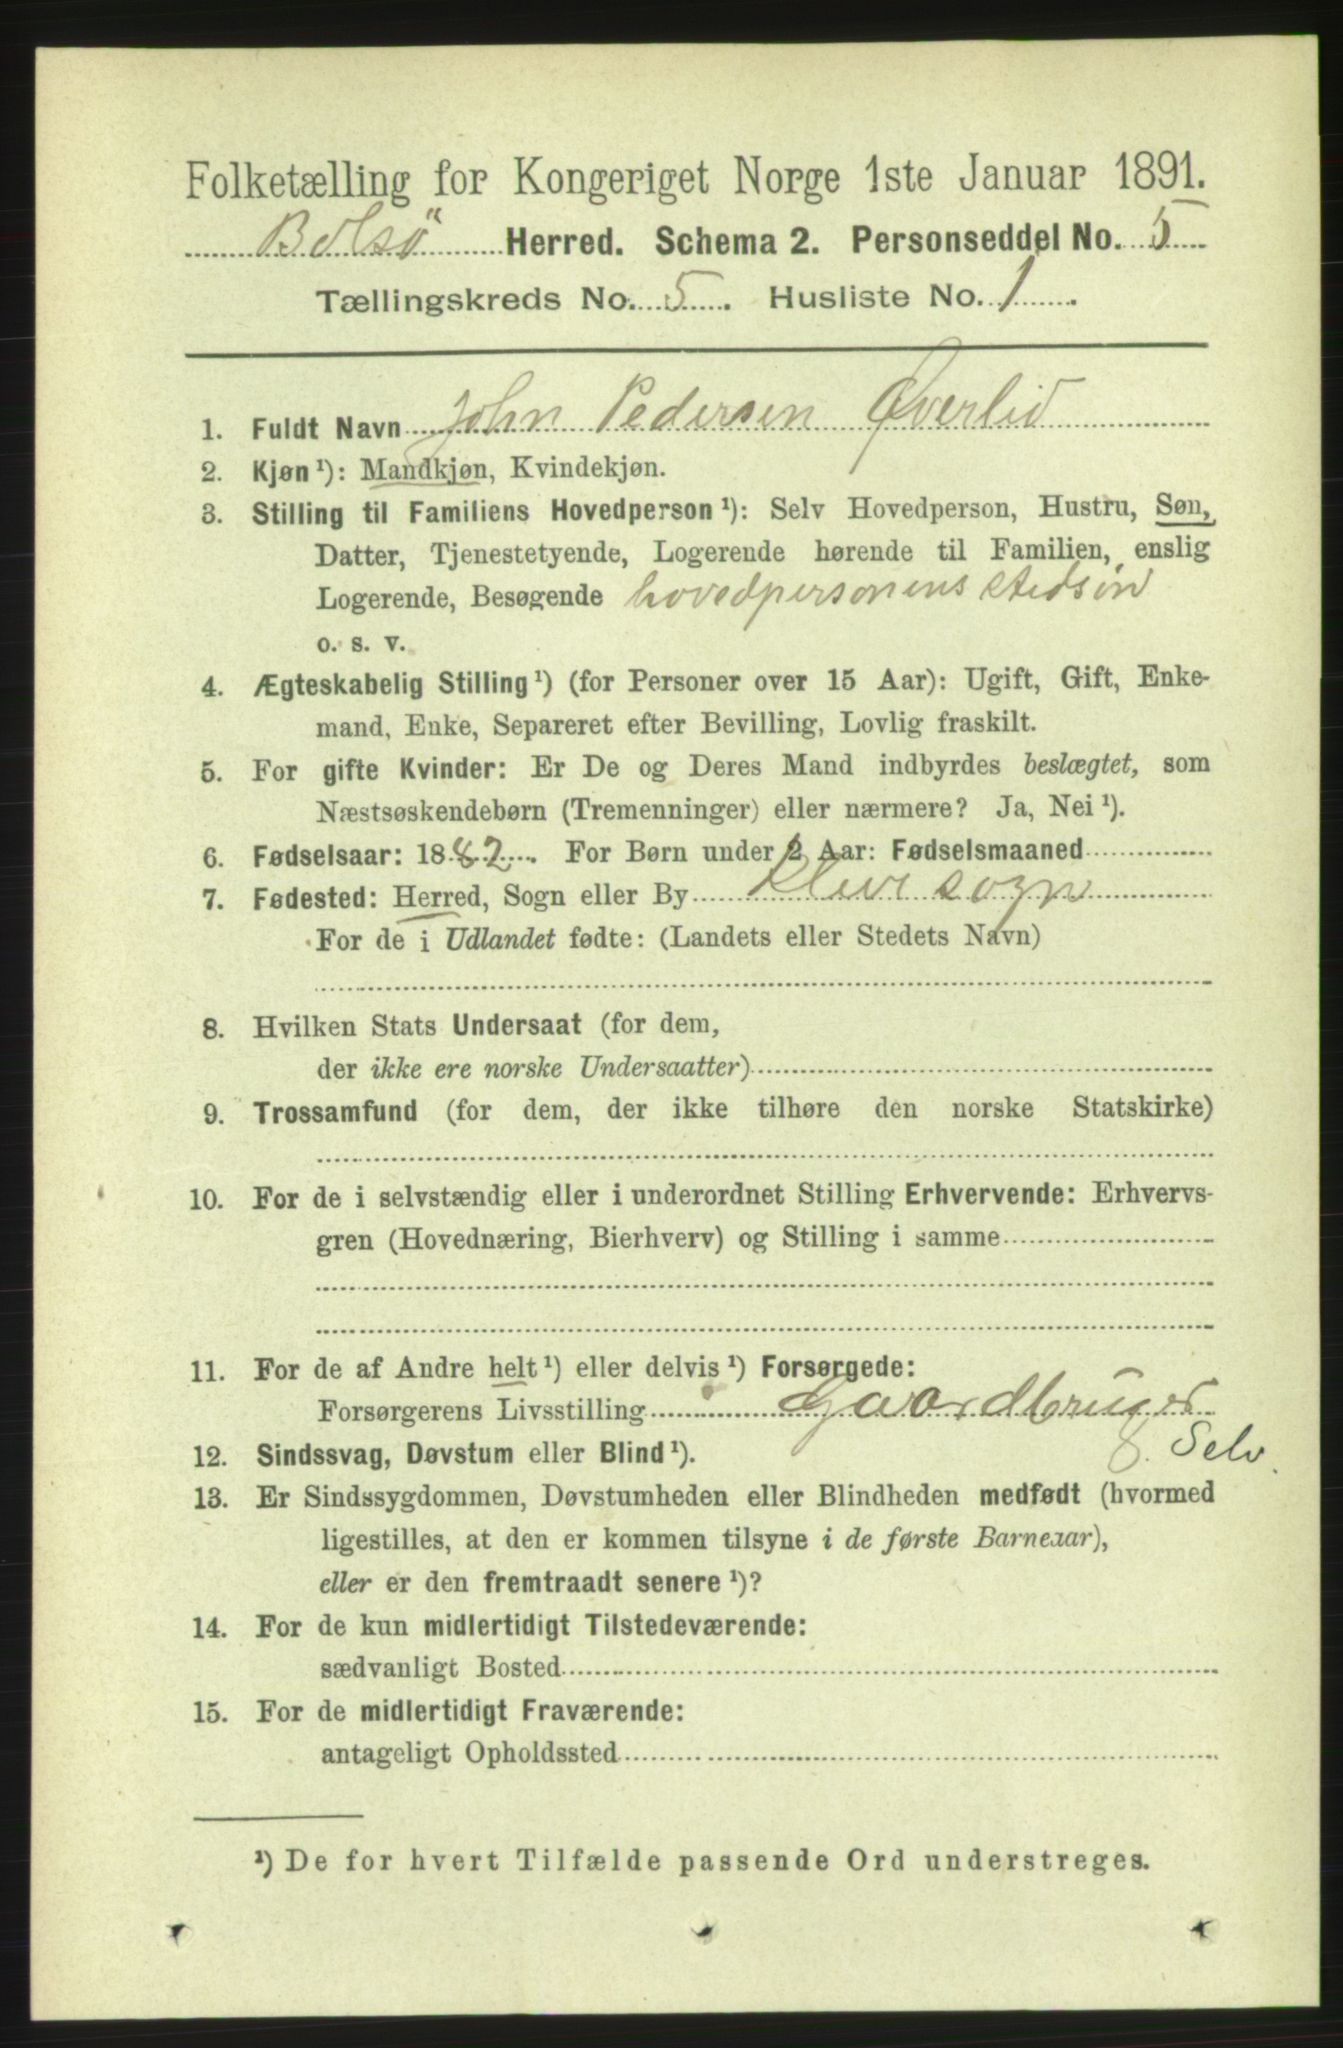 Folketælling for Kongeriget Norge 1ste Januar 1891.
Bolsö Herred. Schema 2. Personseddel No. 5
Tællingskreds No. 5. Husliste No. 1.
1. Fuldt Navn John Pedersen Øverlid
2. Kjøn ¹): Mandkjøn, Kvindekjøn.
3. Stilling til Familiens Hovedperson ¹): Selv Hovedperson, Hustru, Søn,
Datter, Tjenestetyende, Logerende hørende til Familien, enslig
Logerende, Besøgende hovedpersonens stedsön
o. s. v.
4. Ægteskabelig Stilling ¹) (for Personer over 15 Aar): Ugift, Gift, Enke-
mand, Enke, Separeret efter Bevilling, Lovlig fraskilt.
5. For gifte Kvinder: Er De og Deres Mand indbyrdes beslægtet, som
Næstsøskendebørn (Tremenninger) eller nærmere? Ja, Nei ¹).
6. Fødselsaar: 1882. For Børn under 2 Aar: Fødselsmaaned
7. Fødested: Herred, Sogn eller By Kleive sogn
For de i Udlandet fødte: (Landets eller Stedets Navn)
8. Hvilken Stats Undersaat (for dem,
der ikke ere norske Undersaatter)
9. Trossamfund (for dem, der ikke tilhøre den norske Statskirke)
10. For de i selvstændig eller i underordnet Stilling Erhvervende: Erhvervs-
gren (Hovednæring, Bierhverv) og Stilling i samme
11. For de af Andre helt ¹) eller delvis ¹) Forsørgede:
Forsørgerens Livsstilling Gaardbruger
Selv.
12. Sindssvag, Døvstum eller Blind ¹).
13. Er Sindssygdommen, Døvstumheden eller Blindheden medfødt (hvormed
ligestilles, at den er kommen tilsyne i de første Barneaar),
eller er den fremtraadt senere ¹)?
14. For de kun midlertidigt Tilstedeværende:
sædvanligt Bosted
15. For de midlertidigt Fraværende:
antageligt Opholdssted
¹) De for hvert Tilfælde passende Ord understreges.